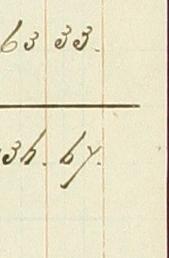 63 33.
34. 67.